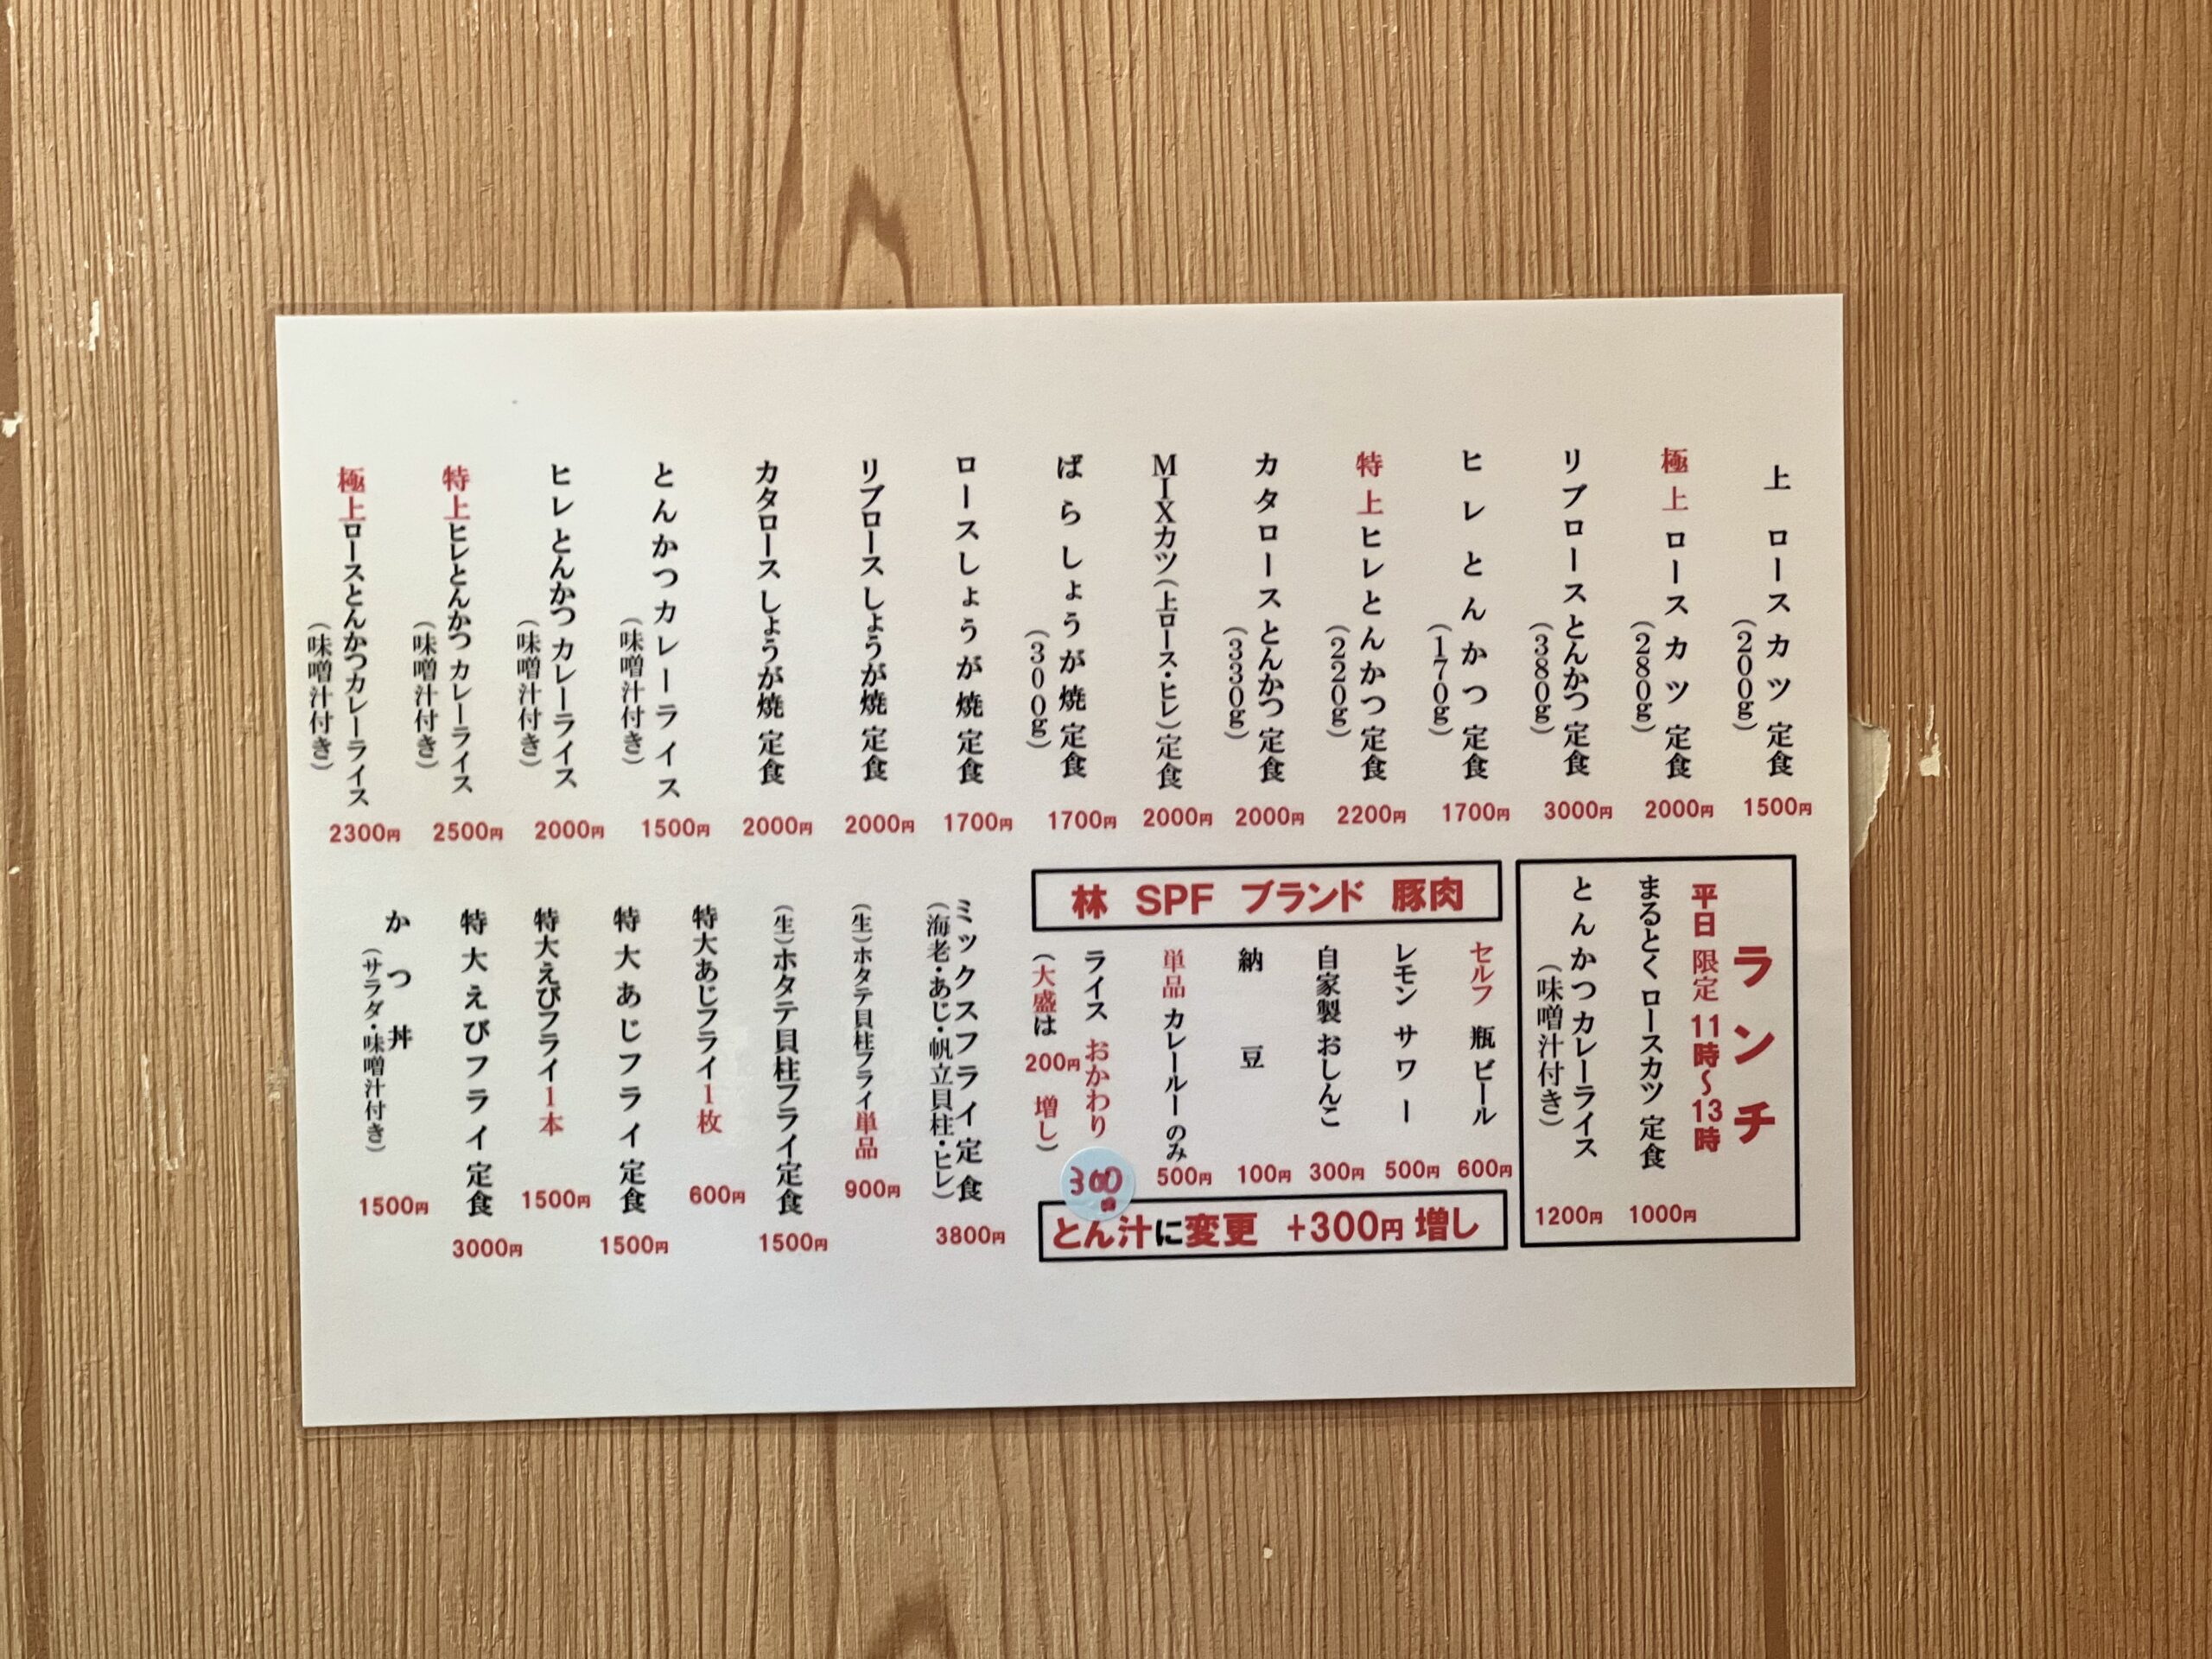 上 ロースカツ 定食
(200g)
1500円
極上 ロースカツ 定食
(280g)
2000円
リブロース とんかつ 定食
(380g)
3000円
ヒレ とんかつ 定食
(170g)
1700円
特上 ヒレとんかつ 定食
(220g)
2200円
カタロース とんかつ 定食
(330g)
2000円
MIXカツ(上ロース・ヒレ)定食
2000円
ばら しょうが焼 定食
(300g)
1700円
ロースしょうが焼 定食
1700円
リブロース しょうが焼 定食
2000円
カタロース しょうが焼 定食
2000円
とんかつカレーライス
(味噌汁付き)
1500円
ヒレ とんかつ カレーライス
(味噌汁付き)
2000円
特上ヒレとんかつ カレーライス
(味噌汁付き)
2500円
極上ロースとんかつカレーライス
(味噌汁付き)
2300円
ランチ
平日 限定 11時〜13時
まるとく ロースカツ 定食
1000円
とんかつカレーライス
(味噌汁付き)
1200円
林 SPF ブランド 豚肉
セルフ 瓶ビール
600円
レモン サワー
500円
自家製 おしんこ
300円
納豆
100円
単品 カレールーのみ
500円
ライス おかわり
300
(大盛は 200円 増し)
とん汁に変更 +300円 増し
ミックスフライ 定食
(海老・あじ・帆立貝柱・ヒレ)
3800円
(生)ホタテ貝柱フライ単品
900円
(生)ホタテ貝柱フライ定食
1500円
特大あじフライ1枚
600円
特大あじフライ 定食
1500円
特大えびフライ1本
1500円
特大えびフライ 定食
3000円
かつ丼
(サラダ・味噌汁付き)
1500円